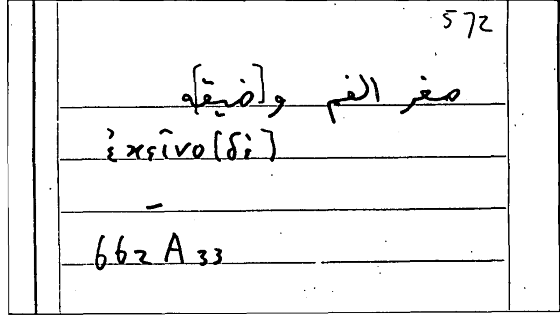 572
صغر الفم و[ضيقه]
ἐκεῖνο [δὲ]
–
662 A 33